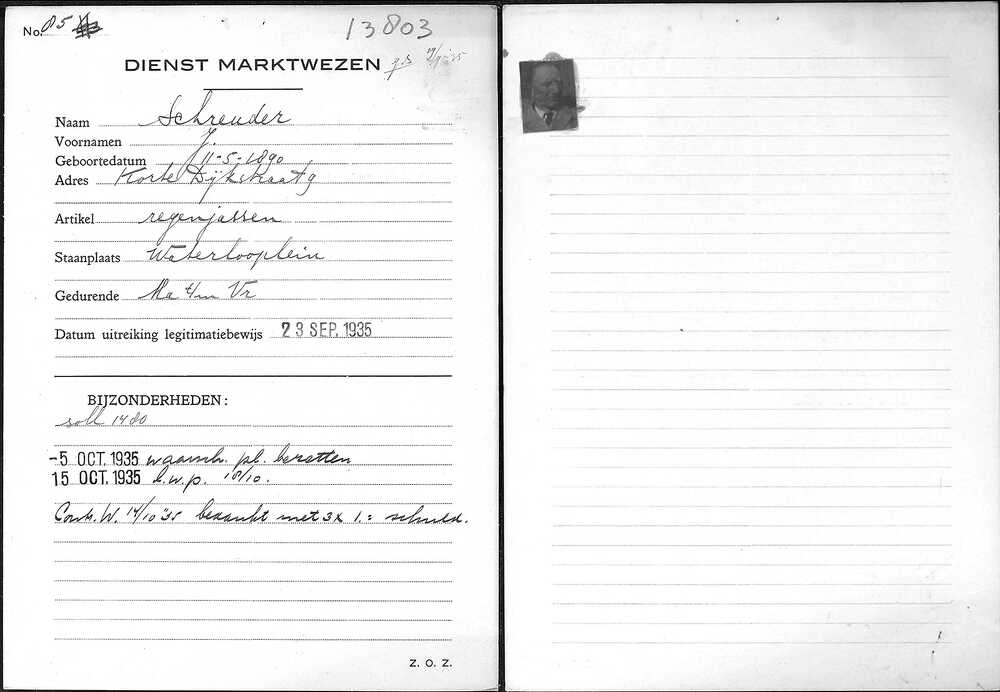 No. 85
13803
DIENST MARKTWEZEN
Naam Schreuder
Voornamen J.
Geboortedatum 11-5-1890
Adres Korte Dijkstraat 9
Artikel regenjassen
Staanplaats Waterlooplein
Gedurende Ma t/m Vr
Datum uitreiking legitimatiebewijs 23 SEP. 1935
BIJZONDERHEDEN:
soll 1480
-5 OCT. 1935 waarsch. pl. bezetten
15 OCT. 1935 l.w.p. 18/10.
Contr. W. 14/10 '35 bedankt met 3x 1.= schuld.
Z. O. Z.